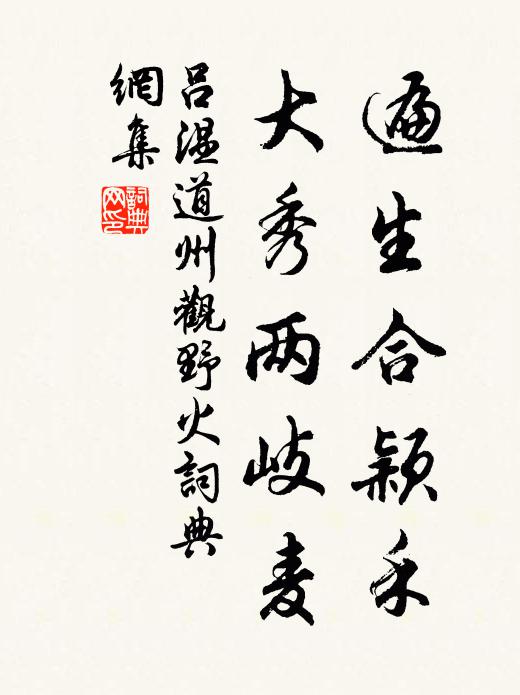 遍生合颖禾
大秀两岐麦
吕温道州觀野火詞典
網集
詞典网印